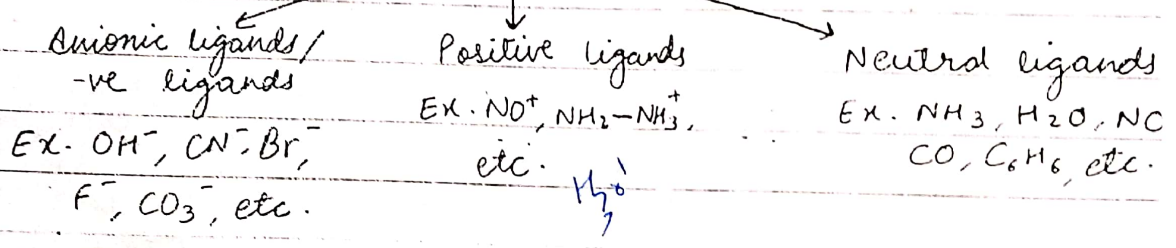 Anionic ligands/
-ve ligands
Ex. OH⁻, CN⁻, Br⁻,
F⁻, CO₃⁻, etc.
Positive ligands
Ex. NO⁺, NH₂–NH₃⁺,
etc.
Neutral ligands
Ex. NH₃, H₂O, NC
CO, C₆H₆, etc.